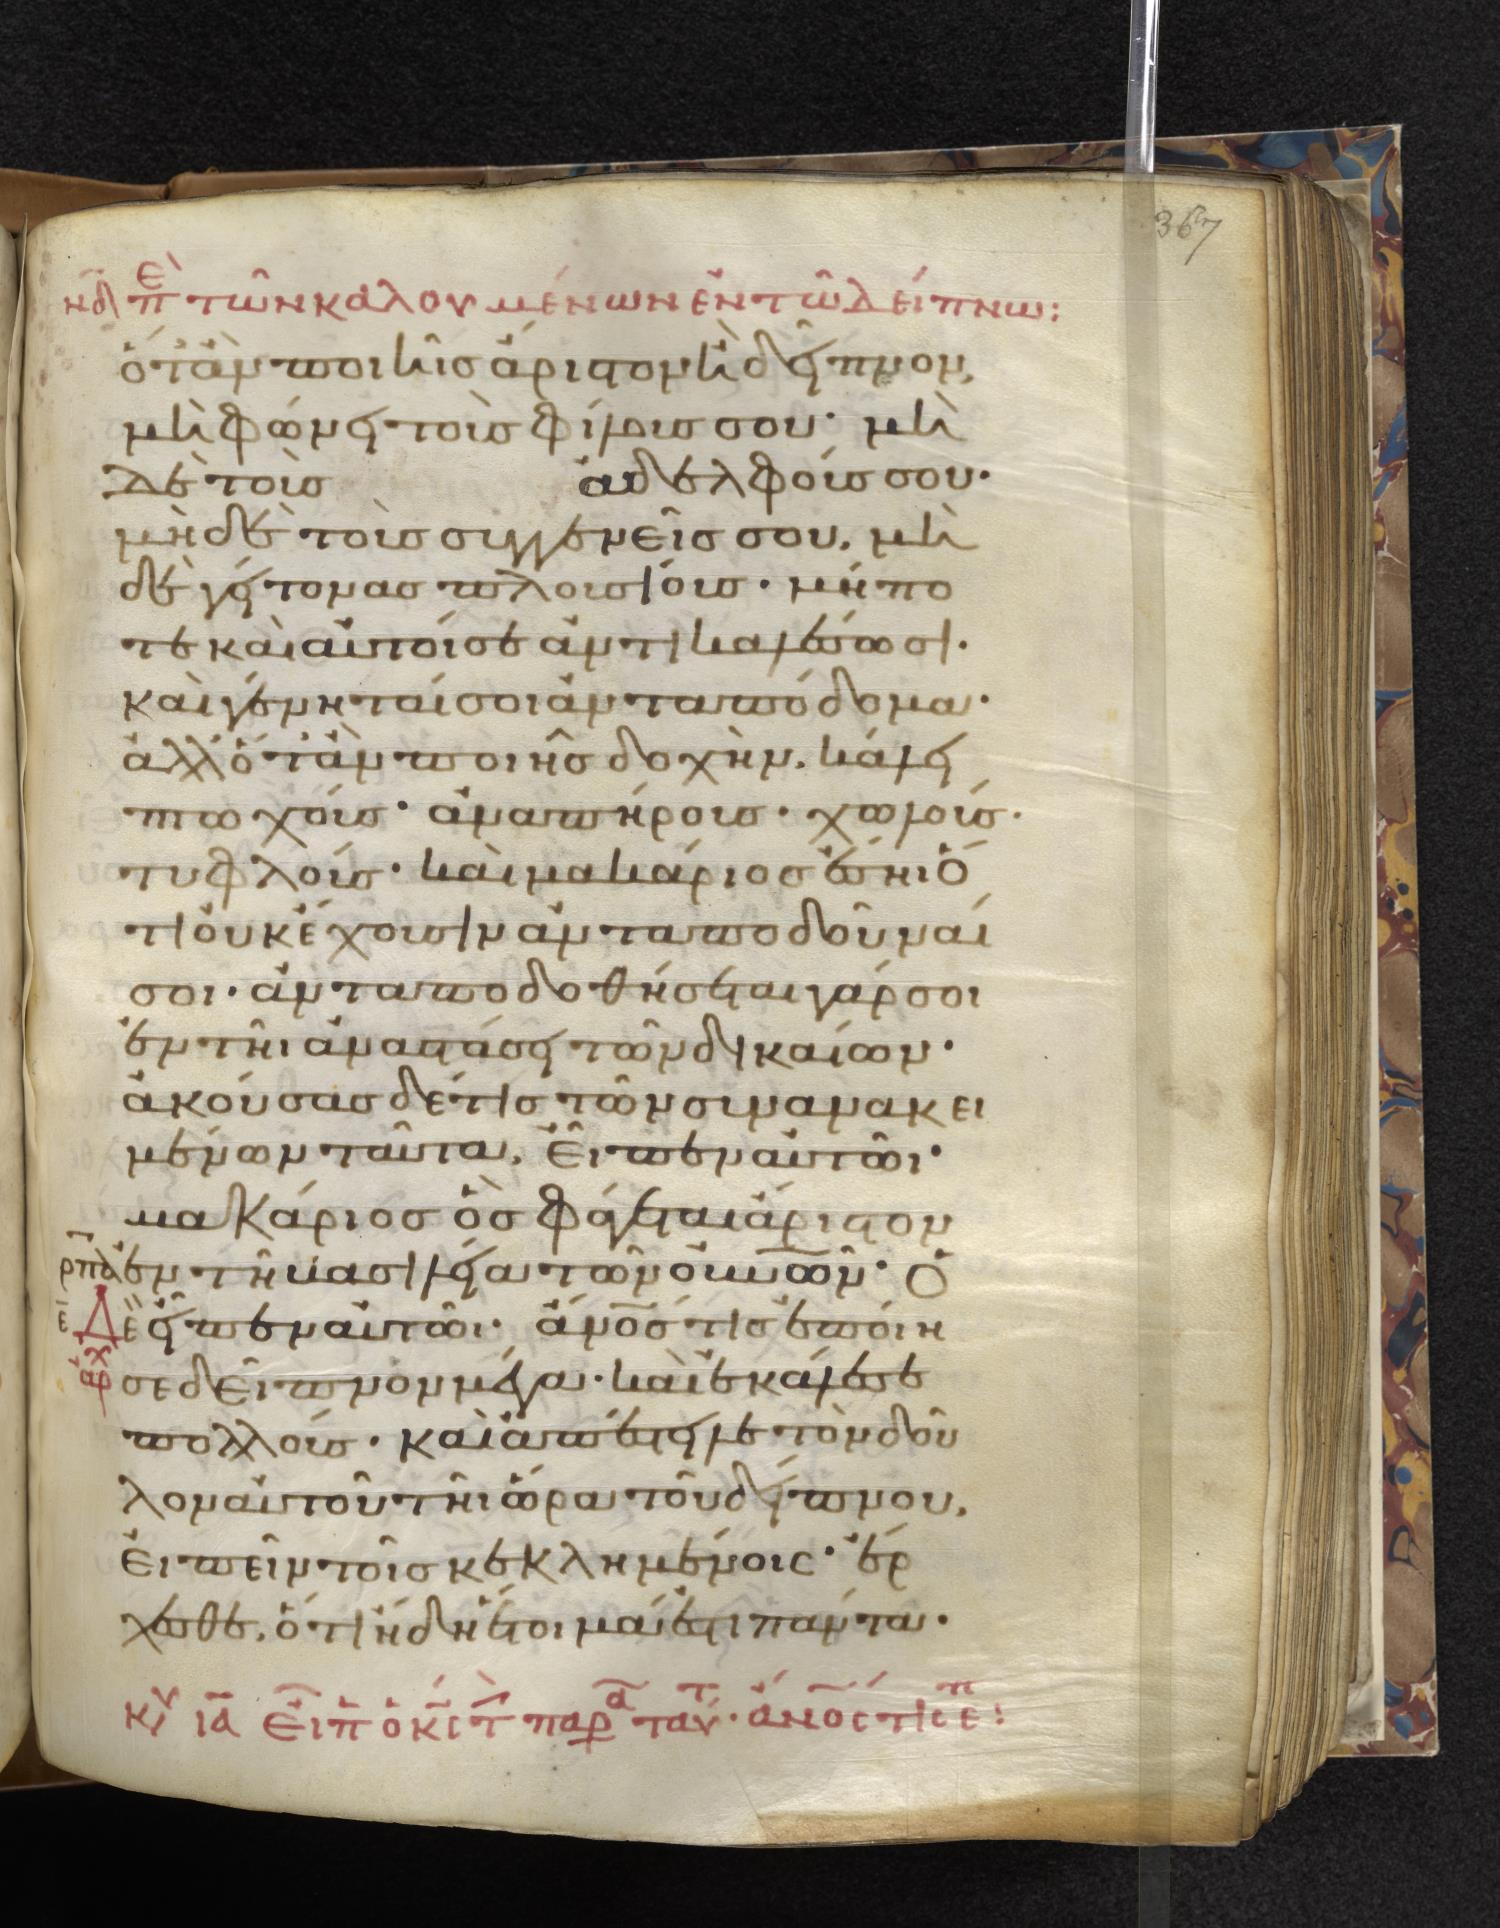 367
νδ πὲ τῶν καλουμένων ἐν τῶ δείπνω:
ὅτὰν ποιῆις ἄριστον ἢ δεῖπνον,
μὴ φώνει τοῖς φίλοις σου· μὴ
δὲ τοῖς ἀδελφοῖς σου·
μὴ δὲ τοῖς συγγενεῖς σου, μὴ
δὲ γείτονας πλουσίοις· μήπο
τε καὶ αὐτοί σε ἀντικαλέσωσι·
καὶ γένηταί σοι ἀνταπόδομα·
ἀλλ' ὅτὰν ποιῆις δοχὴν, κάλει
πτωχοῖς· ἀναπήροις· χωλοῖς·
τυφλοῖς· καὶ μακάριος ἔσηι ὅ
τι οὐκ ἔχουσιν ἀνταποδοῦναί
σοι· ἀνταποδοθήσεται γάρ σοι
ἐν τῆι ἀναστάσει τῶν δικαίων·
ἀκούσας δέ τις τῶν συνανακει
μένων ταῦτα, εἶπεν αὐτῶι·
μακάριος ὃς φάγεται ἄριστον
ἐν τῆι βασιλεία τῶν οὐνῶν· Ὁ
ρπα
ε Δὲ εἶπεν αὐτῶι· ἄνος τις ἐποίη
ἀρχ σε δεῖπνον μέγα· καὶ ἐκάλεσε
πολλοῖς· καὶ ἀπέστειλε τὸν δοῦ
λον αὐτοῦ τῆι ὥρα τοῦ δείπνου,
εἰπεῖν τοῖς κεκλημένοις· ἔρ
χεσθε, ὅτι ἤδη ἕτοιμά ἐστι πάντα·
κυ ια εἶπ ὁ κς τ παρα ταυτ· ἄνος τις επ: